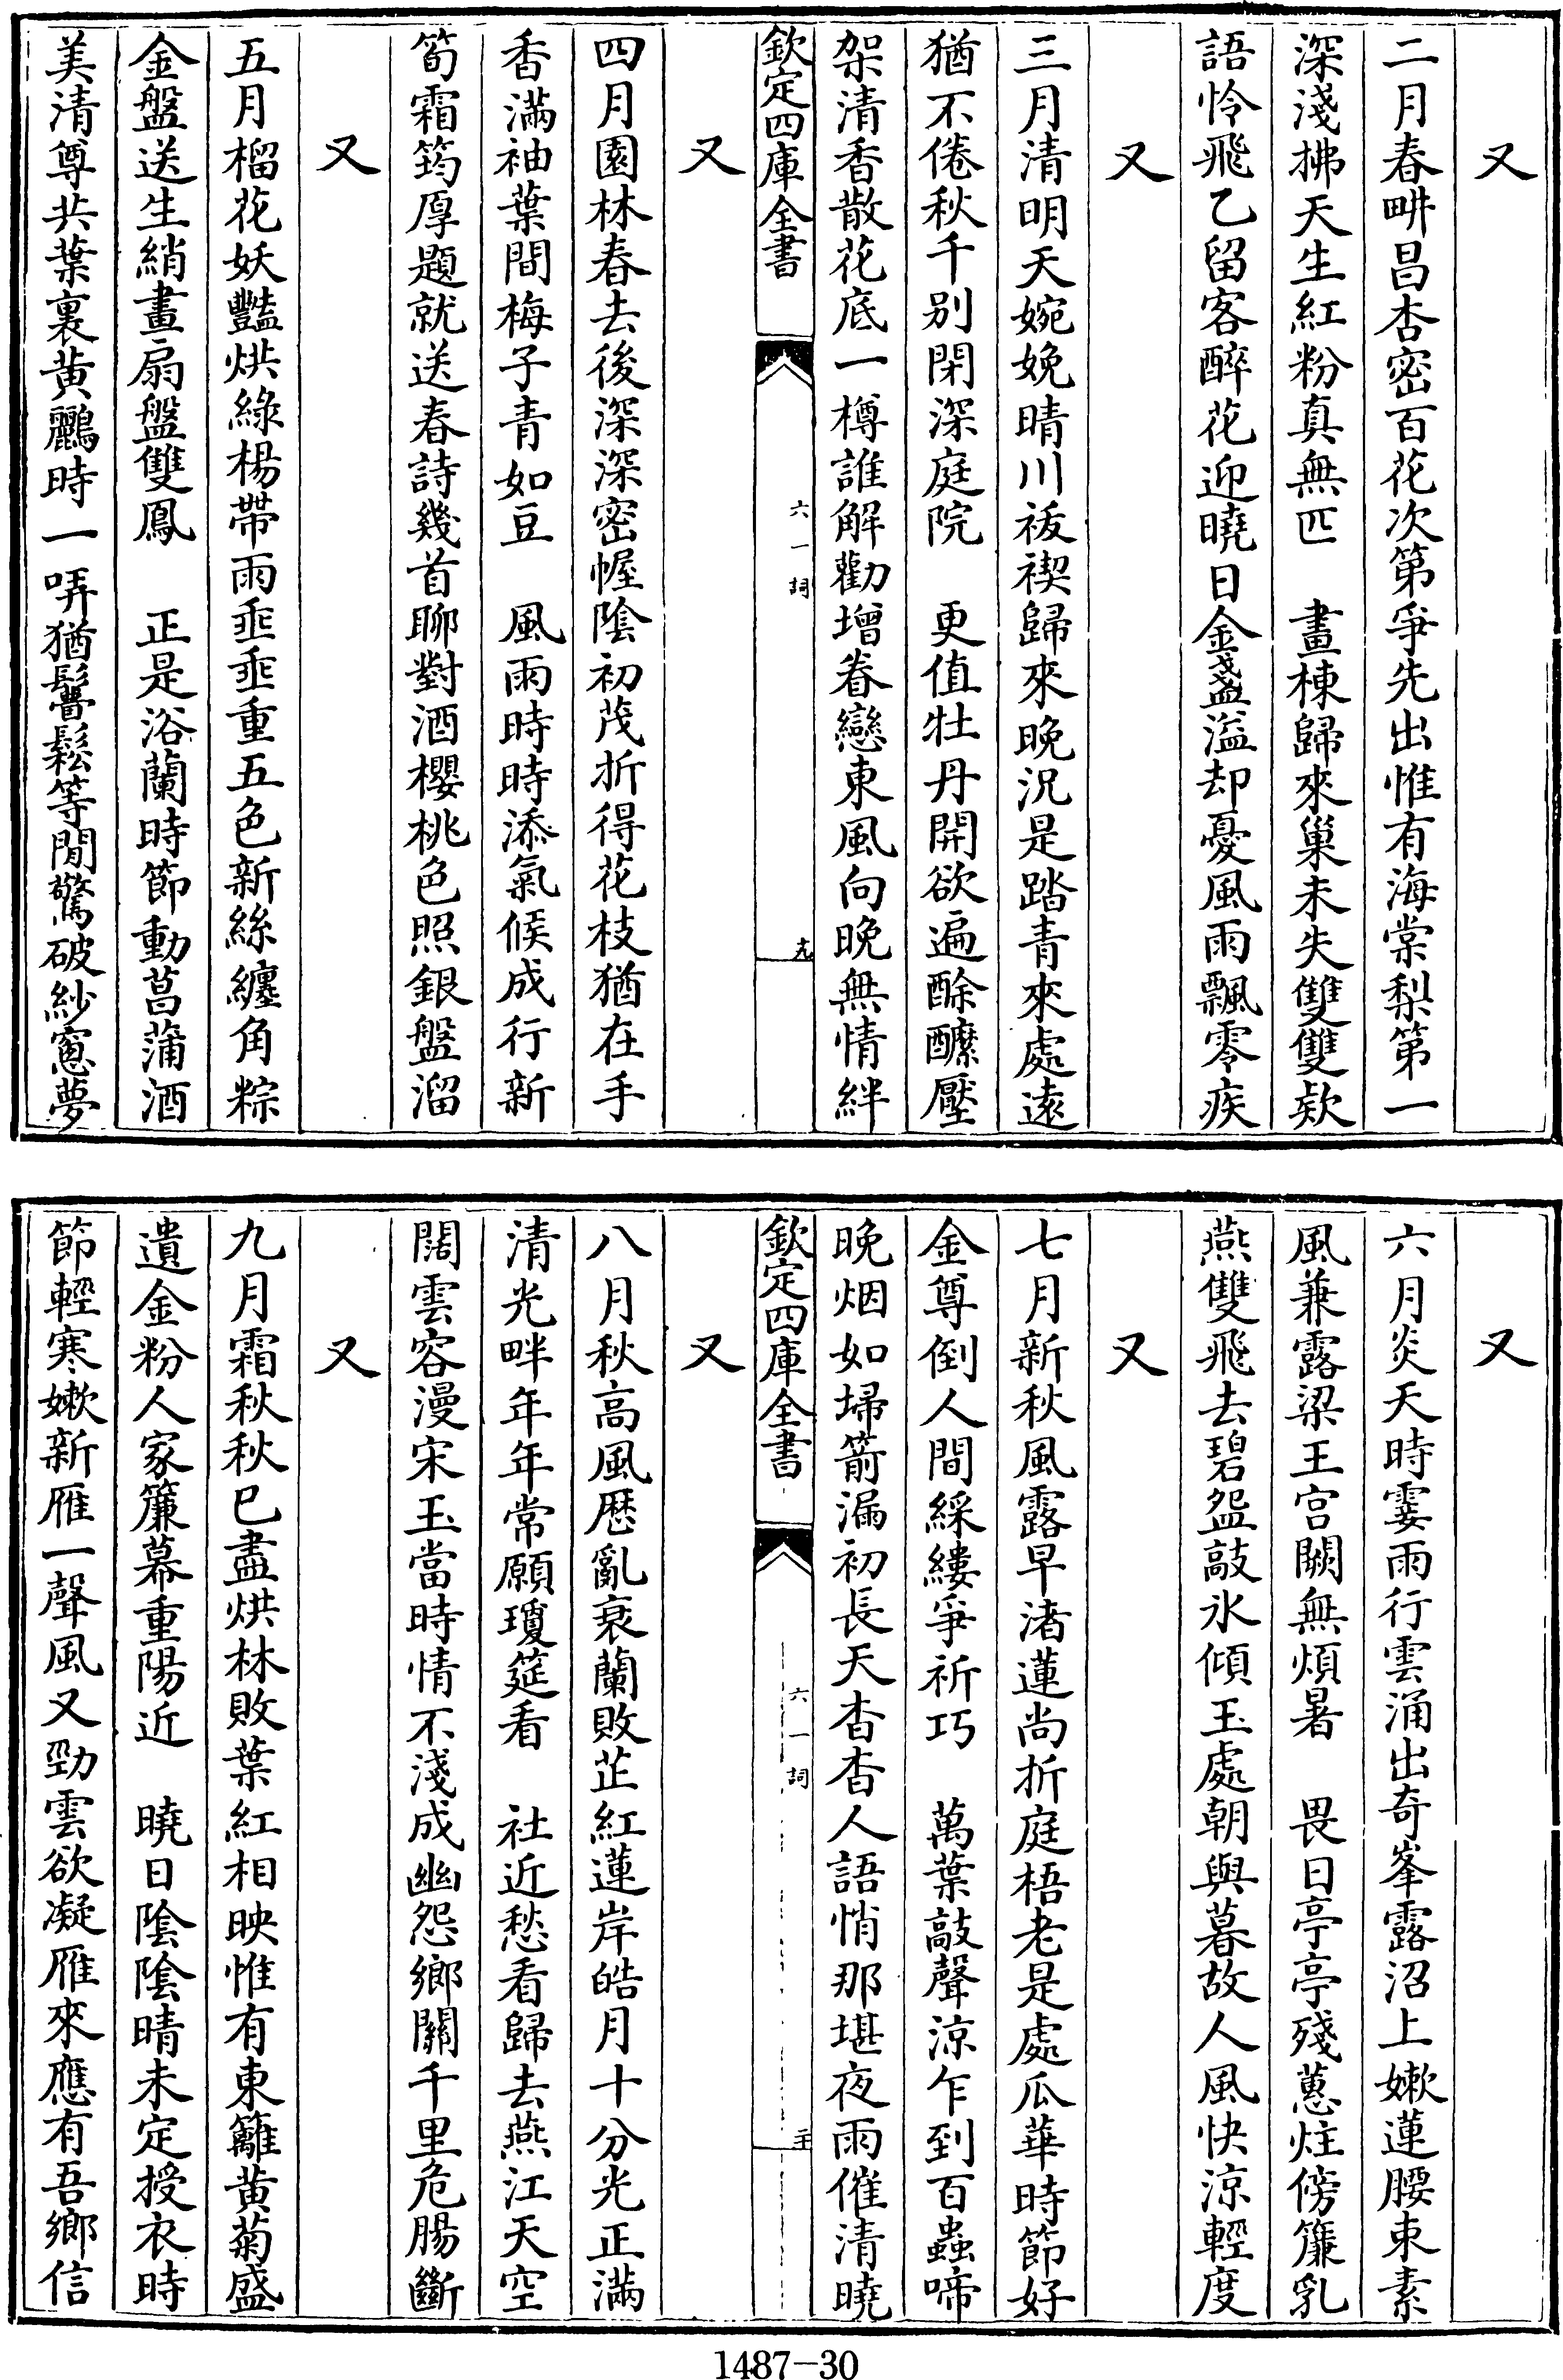 又
二月春畊昌杏密百花次第爭先出惟有海棠梨第一
深淺拂天生紅粉真無匹　畫棟歸來巢未失雙雙欵
語怜飛乙留客醉花迎曉日金盞溢却憂風雨飄零疾
又
三月清明天婉娩晴川祓禊歸來晚況是踏青來處遠
猶不倦秋千别閉深庭院　更值牡丹開欲遍酴醿壓
架清香散花底一樽誰解勸增眷戀東風向晚無情絆
欽定四庫全書
六一詞
十九
又
四月園林春去後深深密幄陰初茂折得花枝猶在手
香滿袖葉間梅子青如豆　風雨時時添氣候成行新
筍霜筠厚題就送春詩幾首聊對酒櫻桃色照銀盤溜
又
五月榴花妖豔烘綠楊帶雨垂垂重五色新絲纏角粽
金盤送生綃畫扇盤雙鳳　正是浴蘭時節動菖蒲酒
美清尊共葉裏黄鸝時一哢猶鬙鬆等閒驚破紗窻夢
又
六月炎天時霎雨行雲涌出奇峯露沼上嫩蓮腰束素
風兼露梁王宫闕無煩暑　畏日亭亭殘蕙炷傍簾乳
燕雙飛去碧盌敲氷傾玉處朝與暮故人風快涼輕度
又
七月新秋風露早渚蓮尚折庭梧老是處瓜華時節好
金尊倒人間綵縷爭祈巧　萬葉敲聲涼乍到百蟲啼
晚烟如埽箭漏初長天杳杳人語悄那堪夜雨催清曉
欽定四庫全書
六一詞
二十
又
八月秋高風歴亂衰蘭敗芷紅蓮岸皓月十分光正滿
清光畔年年常願瓊筵看　社近愁看歸去燕江天空
闊雲容漫宋玉當時情不淺成幽怨鄉關千里危腸斷
又
九月霜秋秋已盡烘林敗葉紅相映惟有東籬黄菊盛
遺金粉人家簾幕重陽近　曉日陰陰晴未定授衣時
節輕寒嫩新雁一聲風又勁雲欲凝雁來應有吾鄉信
1487-30